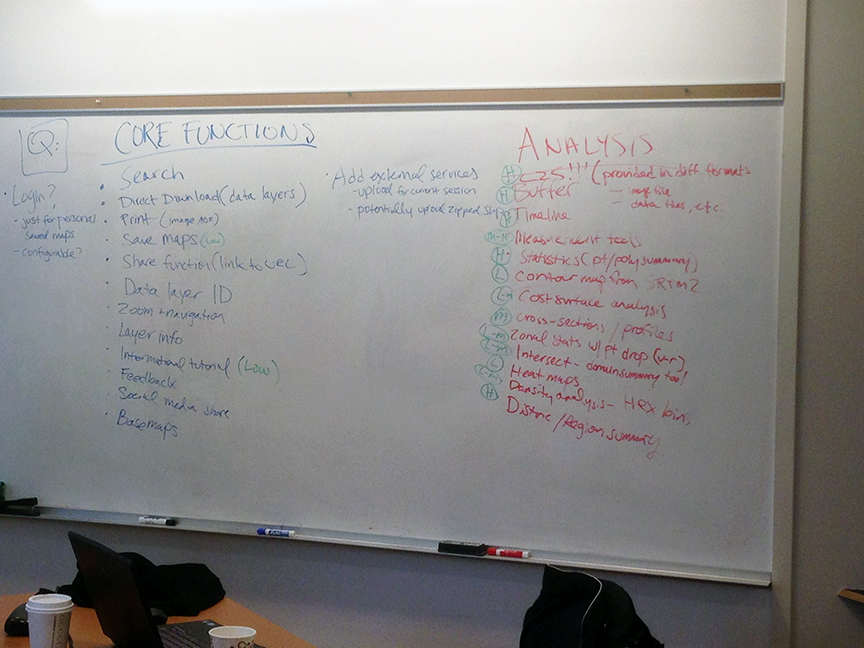 Q:
Login?
- just for personal
saved maps
- configurable?
CORE FUNCTIONS
Search
Direct Download (data layers)
Print (image PDF)
Save maps (Low)
Share function (link to
Data layer ID
Zoom + navigation
Layer info
Informational tutorial (Low)
Feedback
Social media share
Basemaps
Add external services
- upload for current session
- potentially upload zipped shp
ANALYSIS
H CZS!!! (provided in diff. formats
— image file
— data files, etc.
H Buffer
H Timeline
M-H Measurement tools
H Statistics (pt/poly summary)
L Contour map from SRTM2
L Cost surface analysis
M Cross-sections / profiles
L-M Zonal stats w/ pt drop (v-r)
L Intersect - domain summary tool
Heat maps
H Density analysis - Hex bins
District/Region summary